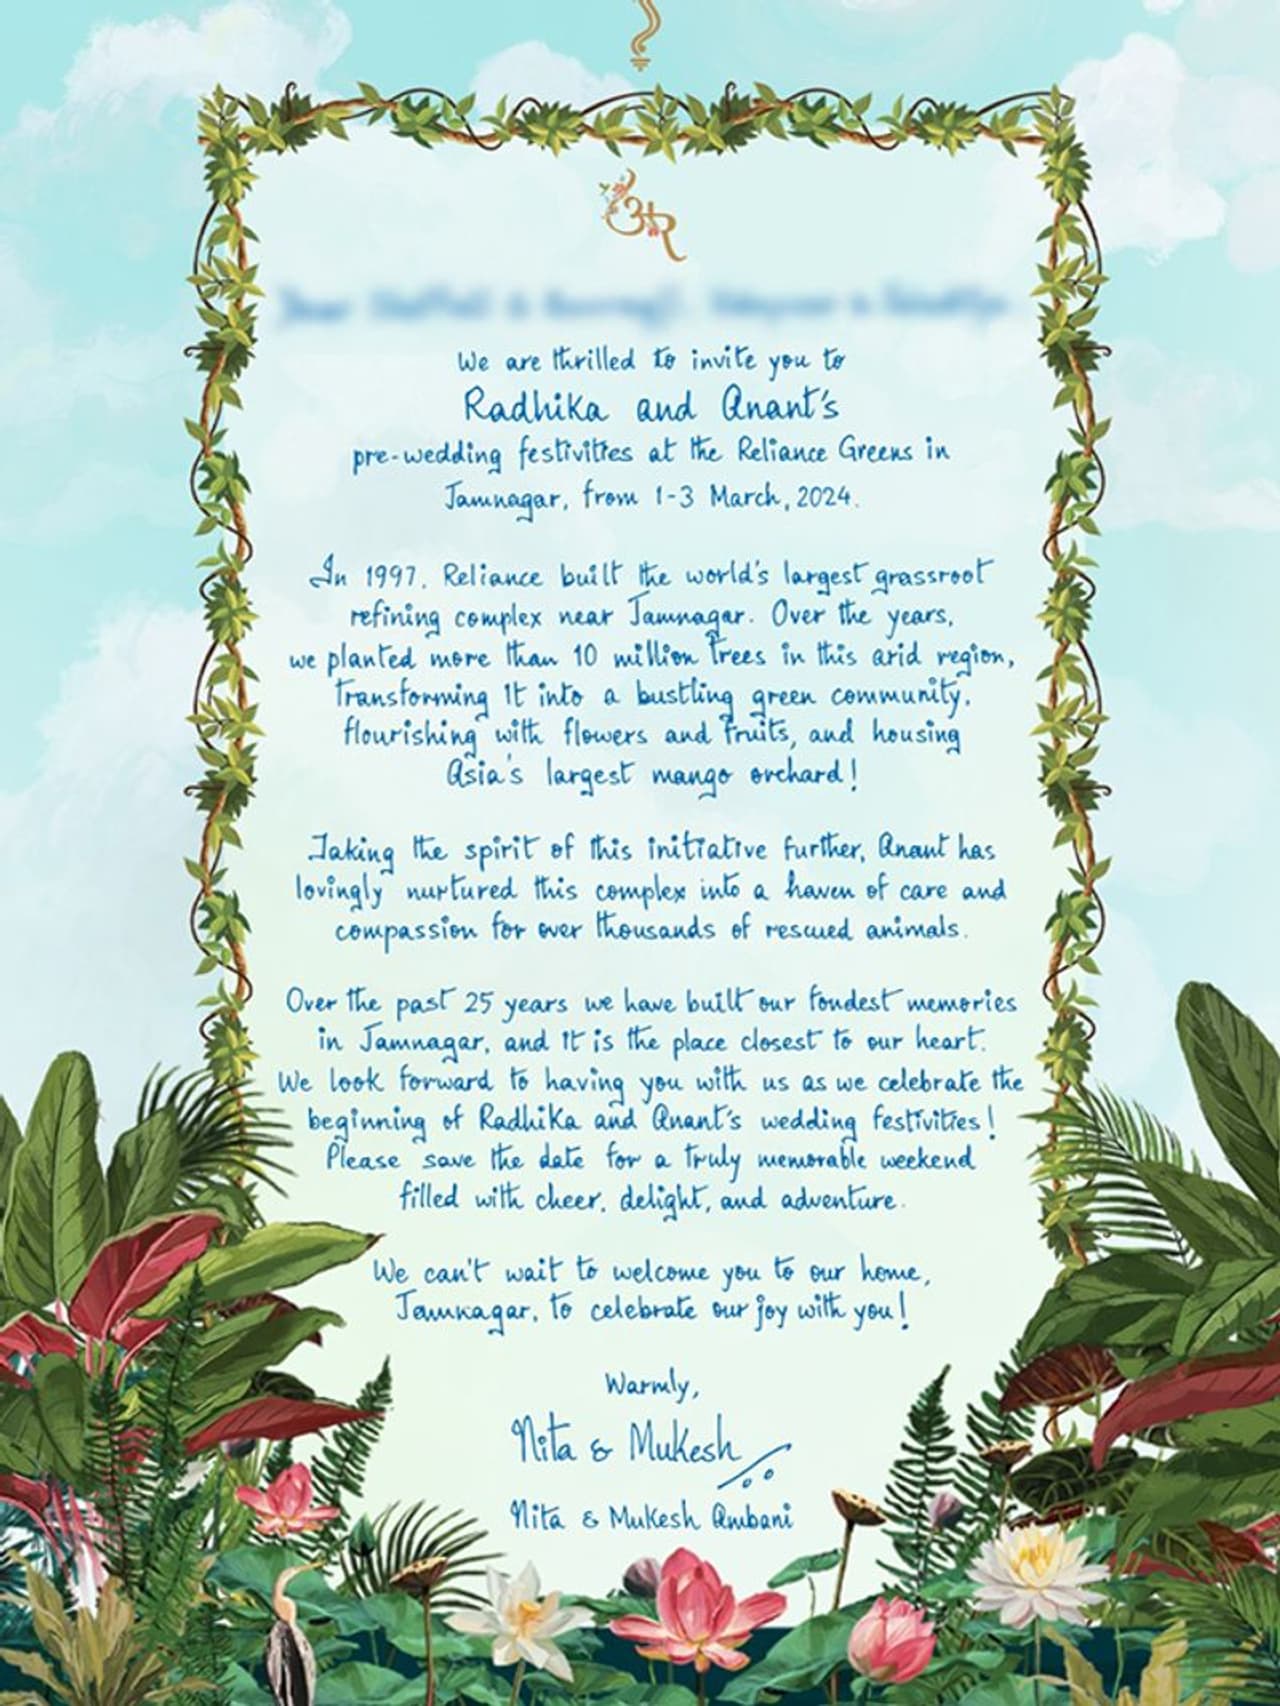 We are thrilled to invite you to
Radhika and Anant's
pre-wedding festivities at the Reliance Greens in
Jamnagar, from 1-3 March, 2024.
In 1997, Reliance built the world's largest grassroot
refining complex near Jamnagar. Over the years,
we planted more than 10 million trees in this arid region,
transforming it into a bustling green community,
flourishing with flowers and fruits, and housing
Asia's largest mango orchard!
Taking the spirit of this initiative further, Anant has
lovingly nurtured this complex into a haven of care and
compassion for over thousands of rescued animals.
Over the past 25 years we have built our fondest memories
in Jamnagar, and it is the place closest to our heart.
We look forward to having you with us as we celebrate the
beginning of Radhika and Anant's wedding festivities!
Please save the date for a truly memorable weekend
filled with cheer, delight, and adventure.
We can't wait to welcome you to our home,
Jamnagar, to celebrate our joy with you!
Warmly,
Nita & Mukesh
Nita & Mukesh Ambani